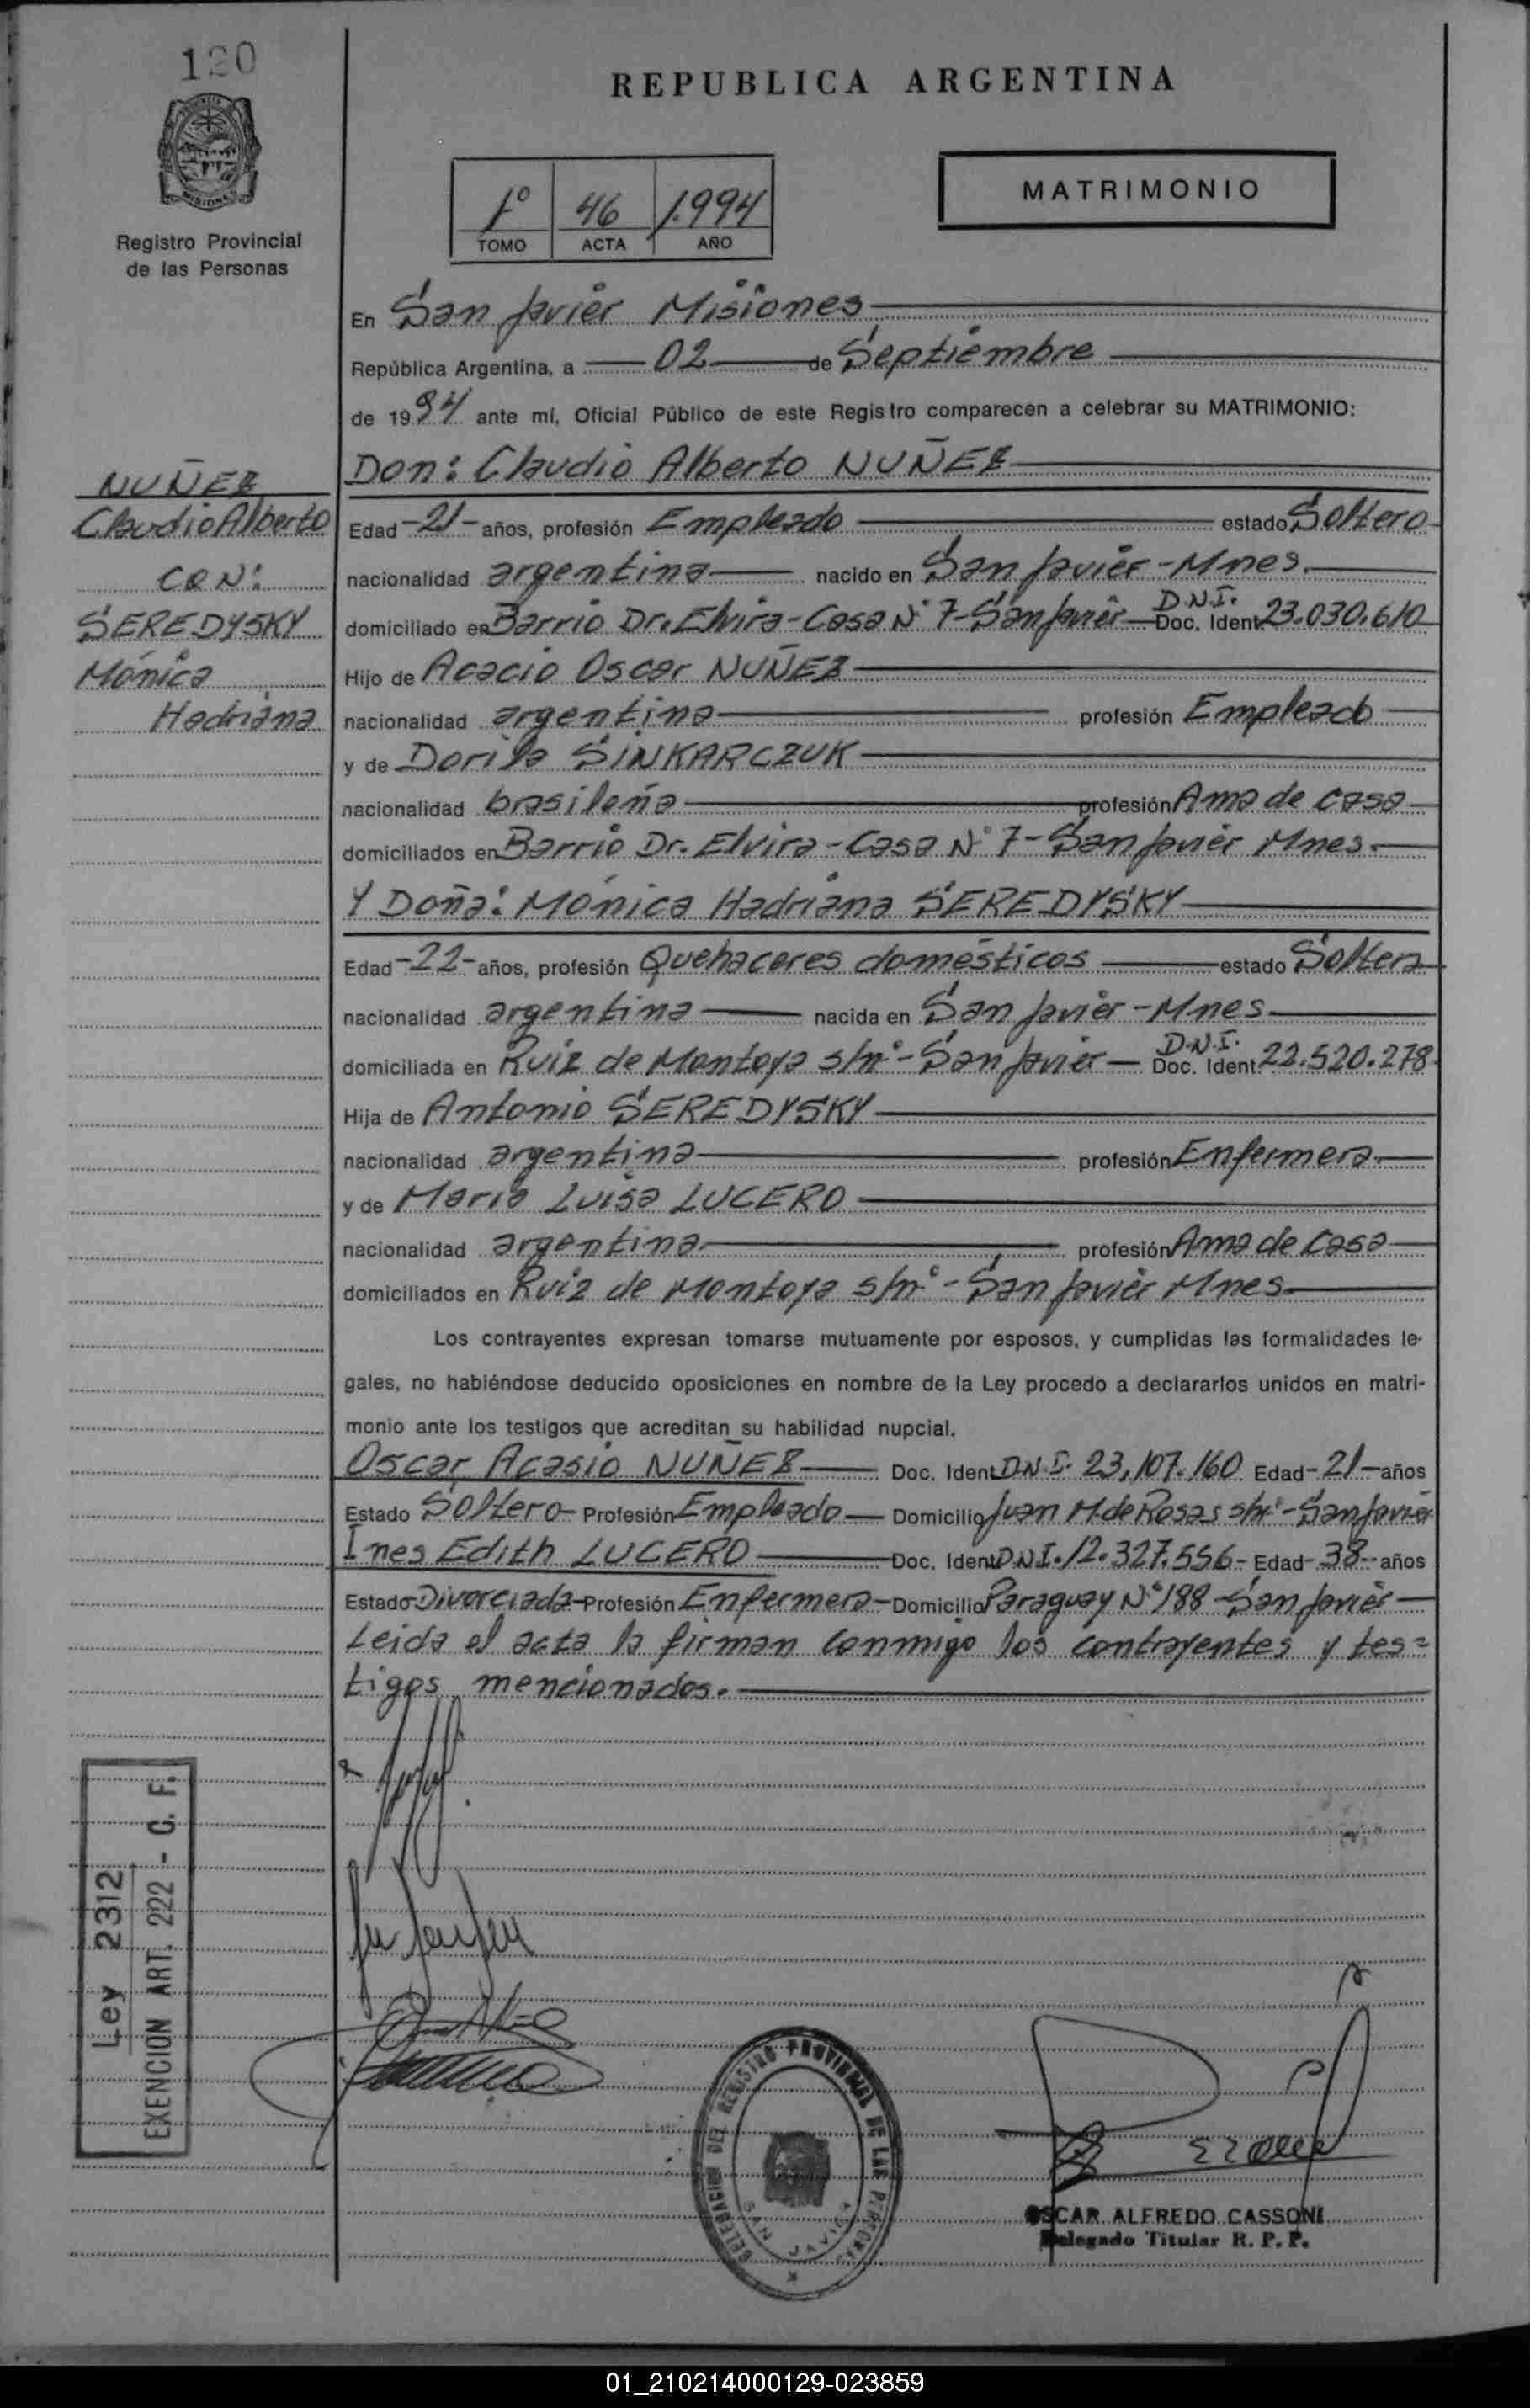 120
REPUBLICA ARGENTINA
MATRIMONIO
1º 46 1.994
TOMO ACTA AÑO
MISIONES
Registro Provincial
de las Personas
En San Javier Misiones
República Argentina, a 02 de Septiembre
de 1994 ante mí, Oficial Público de este Registro comparecen a celebrar su MATRIMONIO:
Don: Claudio Alberto NUÑEZ
NUÑEZ
Claudio Alberto
CON:
SEREDYSKY
Mónica
Hadriana
Edad -21- años, profesión Empleado estado Soltero
nacionalidad argentina nacido en San Javier - Mnes.
domiciliado en Barrio Dr. Elvira - Casa Nº 7 - San Javier D.N.I. Doc. Ident. 23.030.610
Hijo de Acacio Oscar NUÑEZ
nacionalidad argentina profesión Empleado
y de Dorila SINKARCZUK
nacionalidad brasileña profesión Ama de casa
domiciliados en Barrio Dr. Elvira - Casa Nº 7 - San Javier Mnes.
Y Doña: Mónica Hadriana SEREDYSKY
Edad -22- años, profesión Quehaceres domésticos estado Soltera
nacionalidad argentina nacida en San Javier - Mnes
domiciliada en Ruiz de Montoya s/nº - San Javier D.N.I. Doc. Ident. 22.520.278
Hija de Antonio SEREDYSKY
nacionalidad argentina profesión Enfermera
y de Maria Luisa LUCERO
nacionalidad argentina profesión Ama de Casa
domiciliados en Ruiz de Montoya s/nº - San Javier Mnes
Los contrayentes expresan tomarse mutuamente por esposos, y cumplidas las formalidades le-
gales, no habiéndose deducido oposiciones en nombre de la Ley procedo a declararlos unidos en matri-
monio ante los testigos que acreditan su habilidad nupcial.
Oscar Acasio NUÑEZ Doc. Ident. D.N.I. 23.107.160 Edad -21- años
Estado Soltero - Profesión Empleado Domicilio Juan M. de Rosas s/nº - San Javier
Ines Edith LUCERO Doc. Ident. D.N.I. 12.327.556 - Edad -38- años
Estado Divorciada - Profesión Enfermera - Domicilio Paraguay Nº 188 - San Javier
Leida el acta la firman conmigo los contrayentes y tes=
tigos mencionados.
Ley 2312
EXENCION ART. 222 - C. F.
DELEGACION DEL REGISTRO PROVINCIAL DE LAS PERSONAS
SAN JAVIER
OSCAR ALFREDO CASSONI
Delegado Titular R. P. P.
01_210214000129-023859